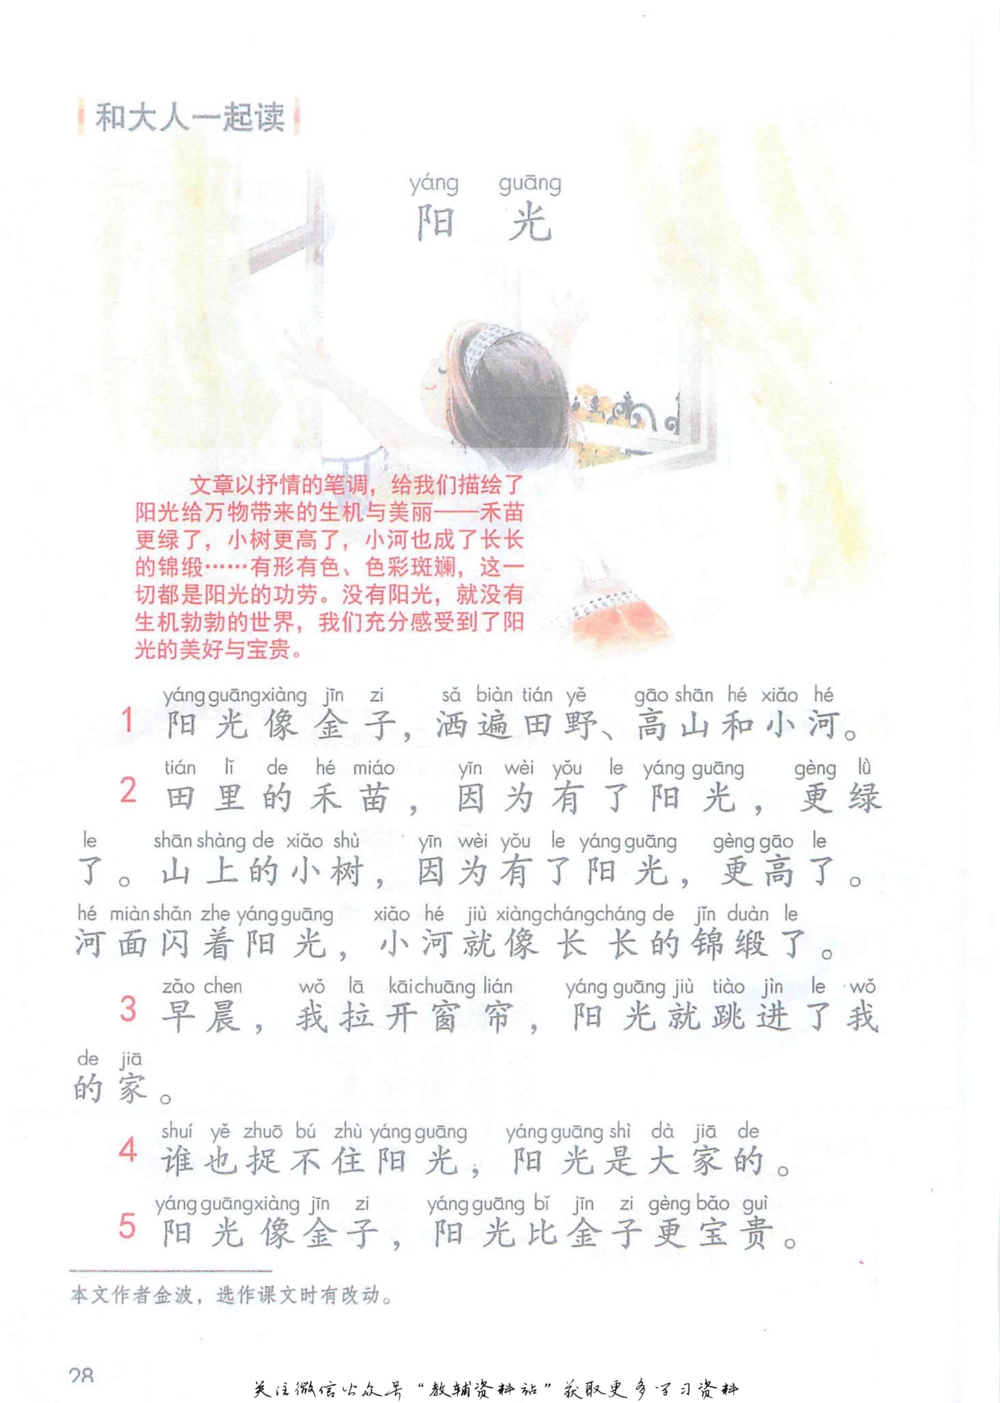 和大人一起读
yáng guāng
阳 光
文章以抒情的笔调，给我们描绘了
阳光给万物带来的生机与美丽——禾苗
更绿了，小树更高了，小河也成了长长
的锦缎……有形有色、色彩斑斓，这一
切都是阳光的功劳。没有阳光，就没有
生机勃勃的世界，我们充分感受到了阳
光的美好与宝贵。
yáng guāng xiàng jīn zi sǎ biàn tián yě gāo shān hé xiǎo hé
1 阳光像金子，洒遍田野、高山和小河。
tián lǐ de hé miáo yīn wèi yǒu le yáng guāng gèng lǜ
2 田里的禾苗，因为有了阳光，更绿
le shān shàng de xiǎo shù yīn wèi yǒu le yáng guāng gèng gāo le
了。山上的小树，因为有了阳光，更高了。
hé miàn shǎn zhe yáng guāng xiǎo hé jiù xiàng cháng cháng de jǐn duàn le
河面闪着阳光，小河就像长长的锦缎了。
zǎo chen wǒ lā kāi chuāng lián yáng guāng jiù tiào jìn le wǒ
3 早晨，我拉开窗帘，阳光就跳进了我
de jiā
的家。
shuí yě zhuō bú zhù yáng guāng yáng guāng shì dà jiā de
4 谁也捉不住阳光，阳光是大家的。
yáng guāng xiàng jīn zi yáng guāng bǐ jīn zi gèng bǎo guì
5 阳光像金子，阳光比金子更宝贵。
本文作者金波，选作课文时有改动。
28
关注微信公众号“教辅资料站”获取更多学习资料